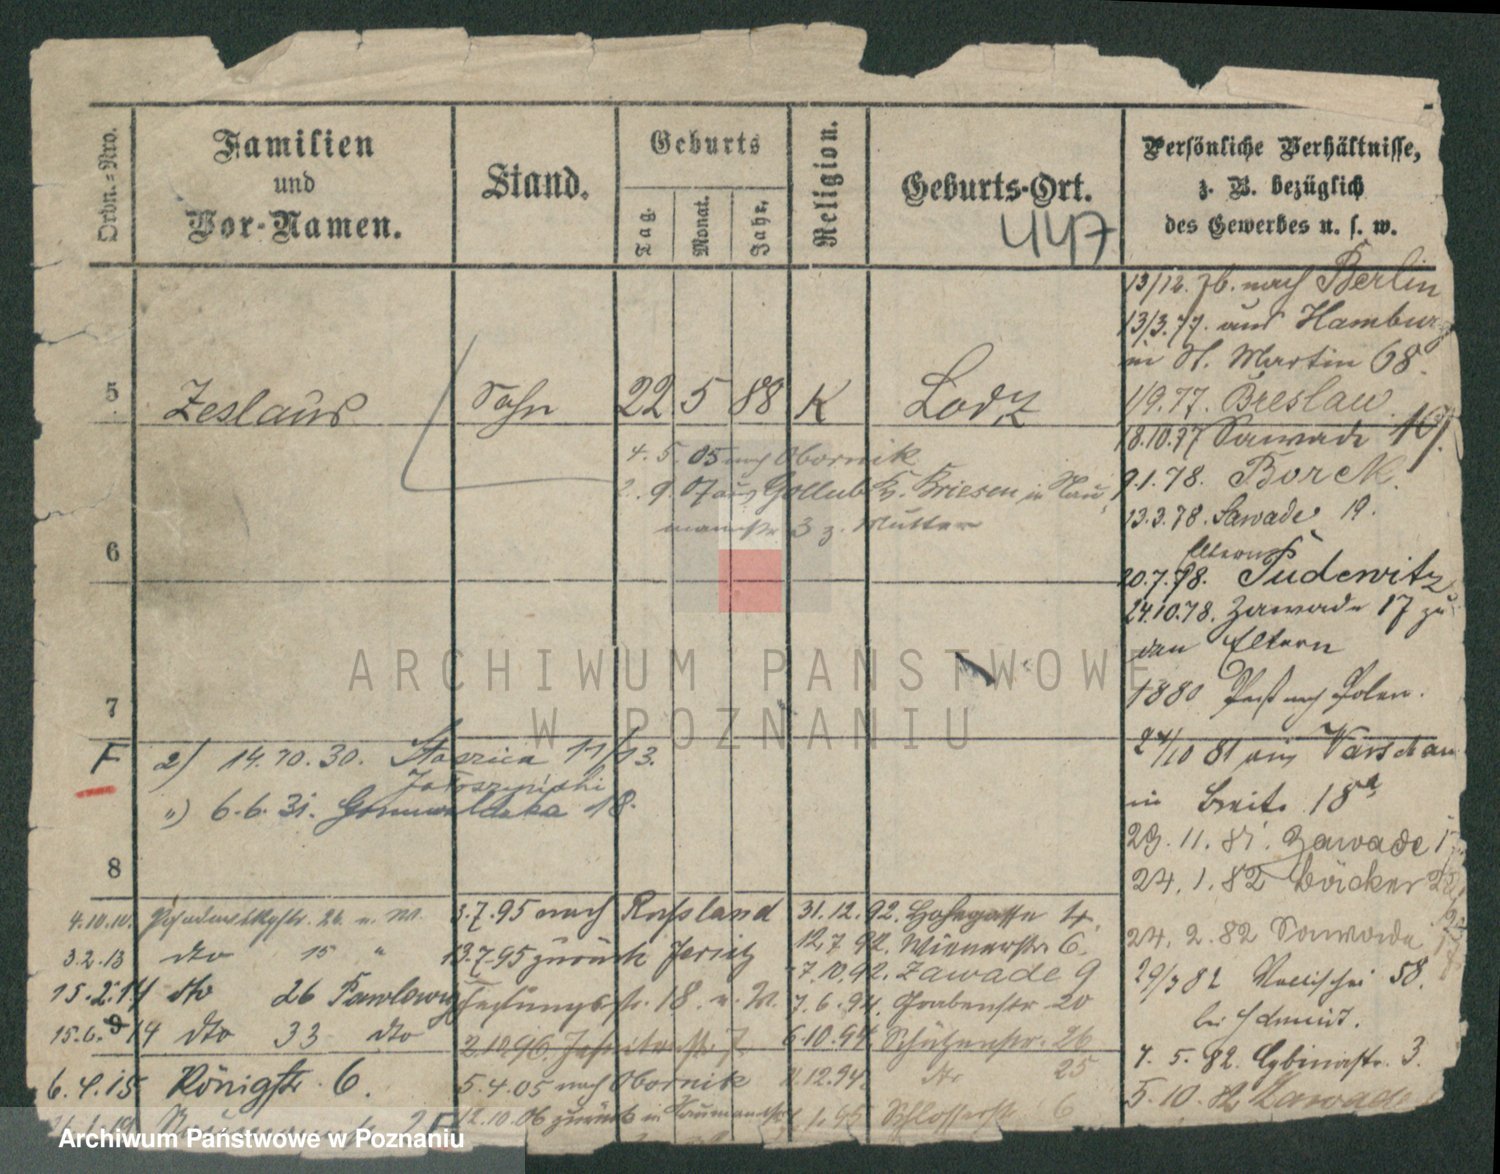 Ordn.=Nro.
Familien
und
Vor-Namen.
Stand.
Geburts
Tag.
Monat.
Jahr.
Religion.
Geburts-Ort.
447
Persönliche Verhältnisse,
z. B. bezüglich
des Gewerbes u. s. w.
5 Zeslaus Sohn 22 5 88 K Lodz
4. 5. 05 nach Obornik
2. 9. 07 aus Gollub Kr. Briesen in Nau
mannstr 3 z. Mutter
6
7
F 2) 14.10.30. Staszica 11/13.
") 6.6.31. Grunwaldzka 18.
8
4.10.10. 26 u. W.
3.2.13 dto 15 "
15.2.14 dto 26 Pawlowicz
15.6.14 dto 33 dto
6.4.15 Königstr. 6.
3.7.95 nach Russland
13.7.95 zurück Jersitz
18. u. W.
5.4.05 nach Obornik
12.10.06 zurück in Naumannstr
31.12.92. Hohegasse 4.
12.7.92. Wienerstr. 6.
7.10.92. Zawade 9
7.6.94. Grabenstr. 20
6.10.94. Schützenstr. 26
12.94. dto 25
1.95. Schlosserstr. 6
13/12. 76. nach Berlin
13/3.77. aus Hamburg
in St. Martin 68.
1/9.77. Breslau.
18.10.77 Sawade 19.
9.1.78. Borek.
13.3.78. Sawade 19.
Eltern
20.7.78. Pudewitz
24.10.78. Zawade 17 zu
den Eltern
1880 nach Polen.
24/10 81 aus Warschau
in Breite 18a
29.11.81. Zawade
24.1.82 Bäcker
24.2.82 Sawade
29/3 82 Wallischei 58.
bei Schmidt.
4.5.82. Cybinastr. 3.
5.10. 82 Zawade
ARCHIWUM PAŃSTWOWE
W POZNANIU
Archiwum Państwowe w Poznaniu